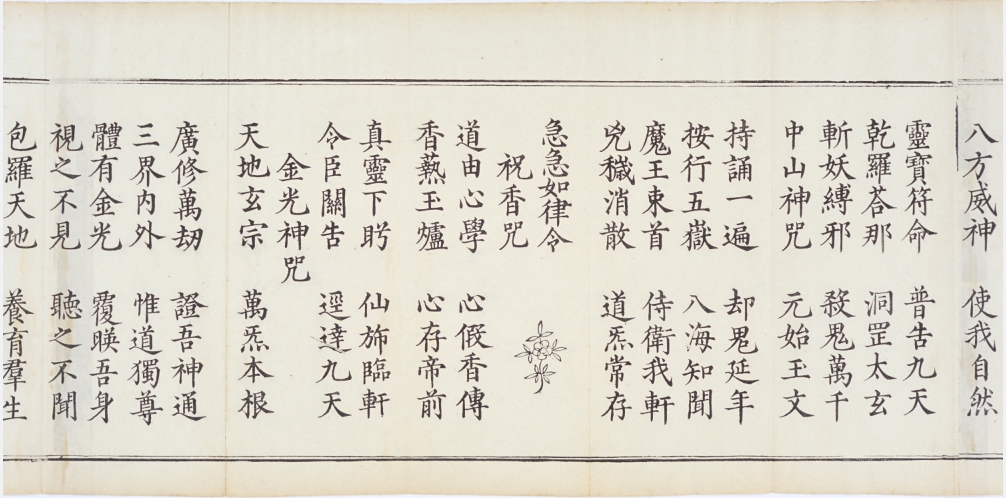 八方威神　使我自然
靈寶符命　普告九天
乾羅荅那　洞罡太玄
斬妖縛邪　殺鬼萬千
中山神咒　元始玉文
持誦一遍　却鬼延年
按行五嶽　八海知聞
魔王束首　侍衛我軒
兇穢消散　道炁常存
急急如律令
祝香咒
道由心學　心假香傳
香爇玉爐　心存帝前
真靈下盻　仙斾臨軒
令臣關告　逕達九天
金光神咒
天地玄宗　萬炁本根
廣修萬劫　證吾神通
三界內外　惟道獨尊
體有金光　覆暎吾身
視之不見　聽之不聞
包羅天地　養育羣生